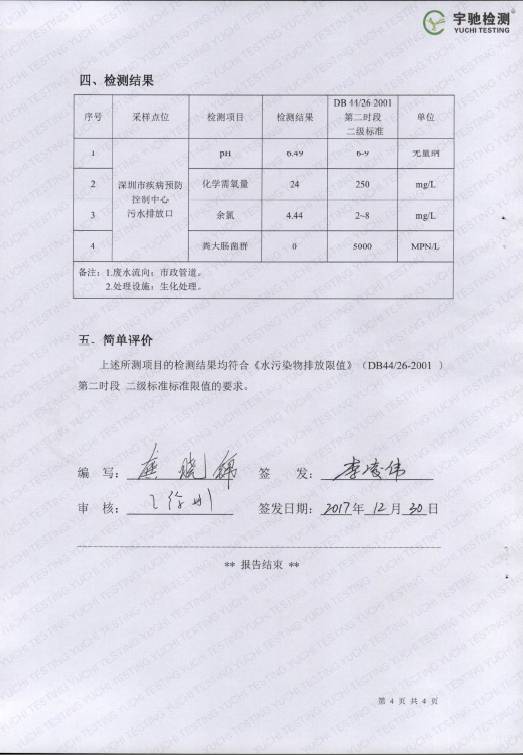 宇驰检测
YUCHI TESTING
四、检测结果
序号 采样点位 检测项目 检测结果 DB 44/26-2001 第二时段 二级标准 单位
1 深圳市疾病预防控制中心污水排放口 pH 6.49 6-9 无量纲
2 化学需氧量 24 250 mg/L
3 余氯 4.44 2~8 mg/L
4 粪大肠菌群 0 5000 MPN/L
备注：1.废水流向：市政管道。
2.处理设施：生化处理。
五、简单评价
上述所测项目的检测结果均符合《水污染物排放限值》（DB44/26-2001 ）
第二时段 二级标准标准限值的要求。
编 写： 签 发：李凌伟
审 核： 签发日期：2017年 12 月 30 日
** 报告结束 **
第 4 页 共 4 页